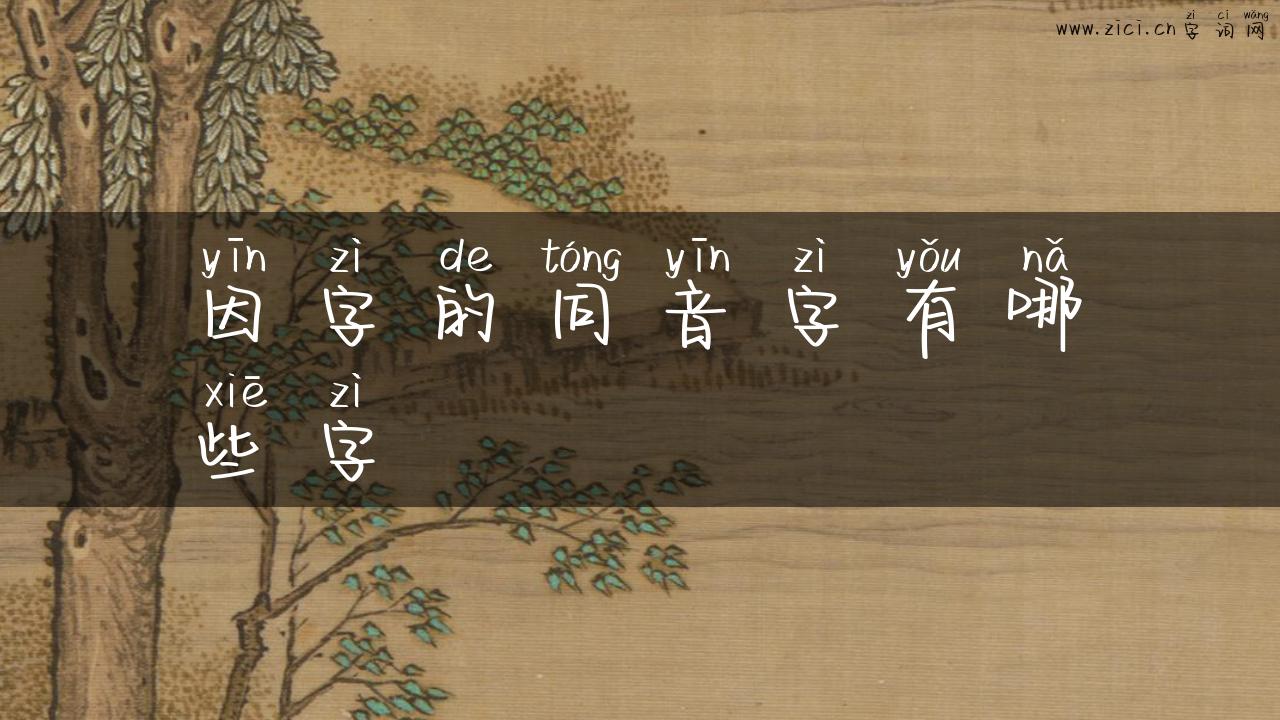 zì cí wǎng
www.zici.cn 字 词 网
yīn zì de tóng yīn zì yǒu nǎ
因 字 的 同 音 字 有 哪
xiē zì
些 字